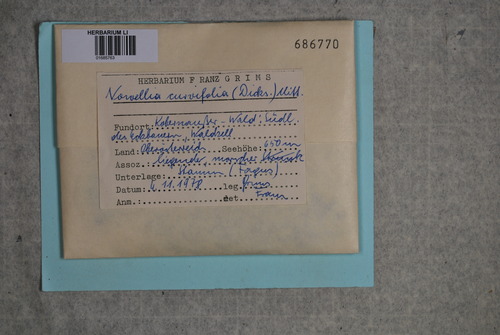 HERBARIUM LI
686770
HERBARIUM FRANZ GRIMS
Nowellia curvifolia (Dicks.) Mitt.
Fundort: Kobernaußer-Wald: Südl.
Waldzell
Land: Oberösterreich Seehöhe: 650 m
Assoz.: liegender, morscher
Unterlage: Stamm (Fagus)
Datum: 6.11.1978 leg. Grims
Anm.: det. Grims